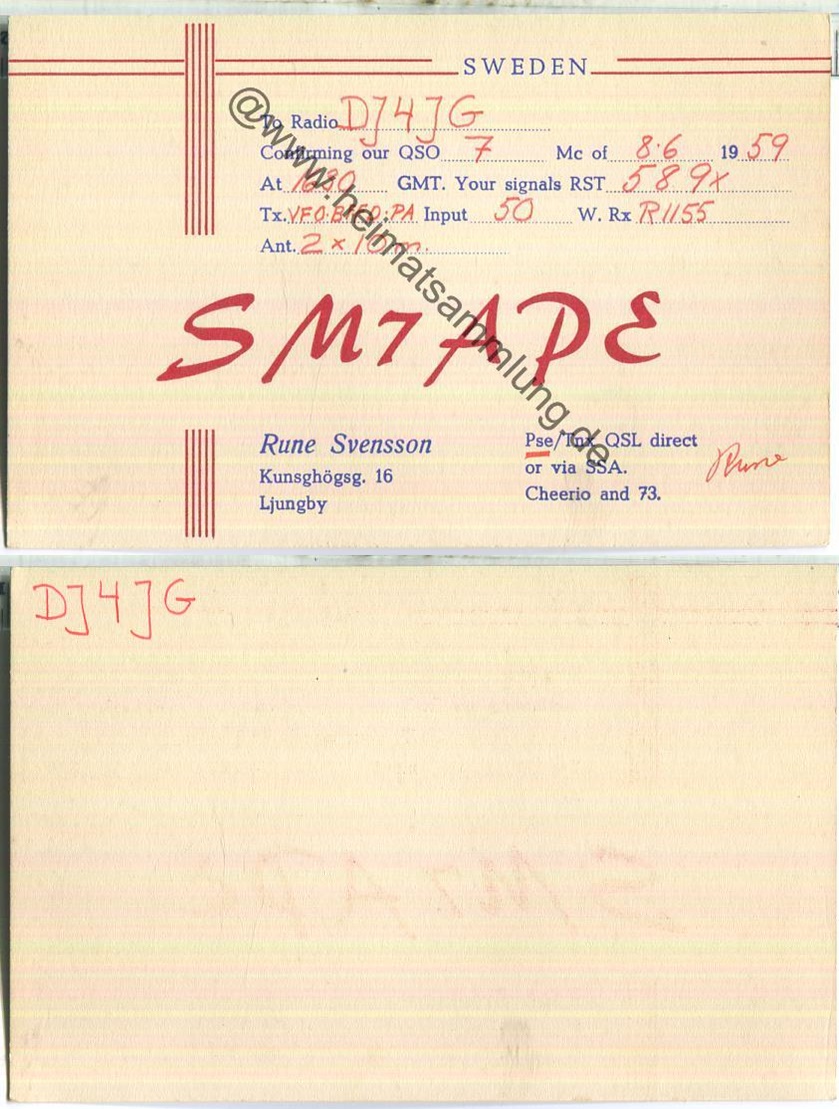 SWEDEN
To Radio DJ4JG
Confirming our QSO 7 Mc of 8.6 1959
At 1630 GMT. Your signals RST 589x
Tx. VFO.BF.FD.PA Input 50 W. Rx R1155
Ant. 2 x 10m.
SM7APE
Rune Svensson
Kunsghögsg. 16
Ljungby
Pse/Tnx QSL direct
or via SSA.
Cheerio and 73.
Rune
@www.heimatsammlung.de
DJ4JG